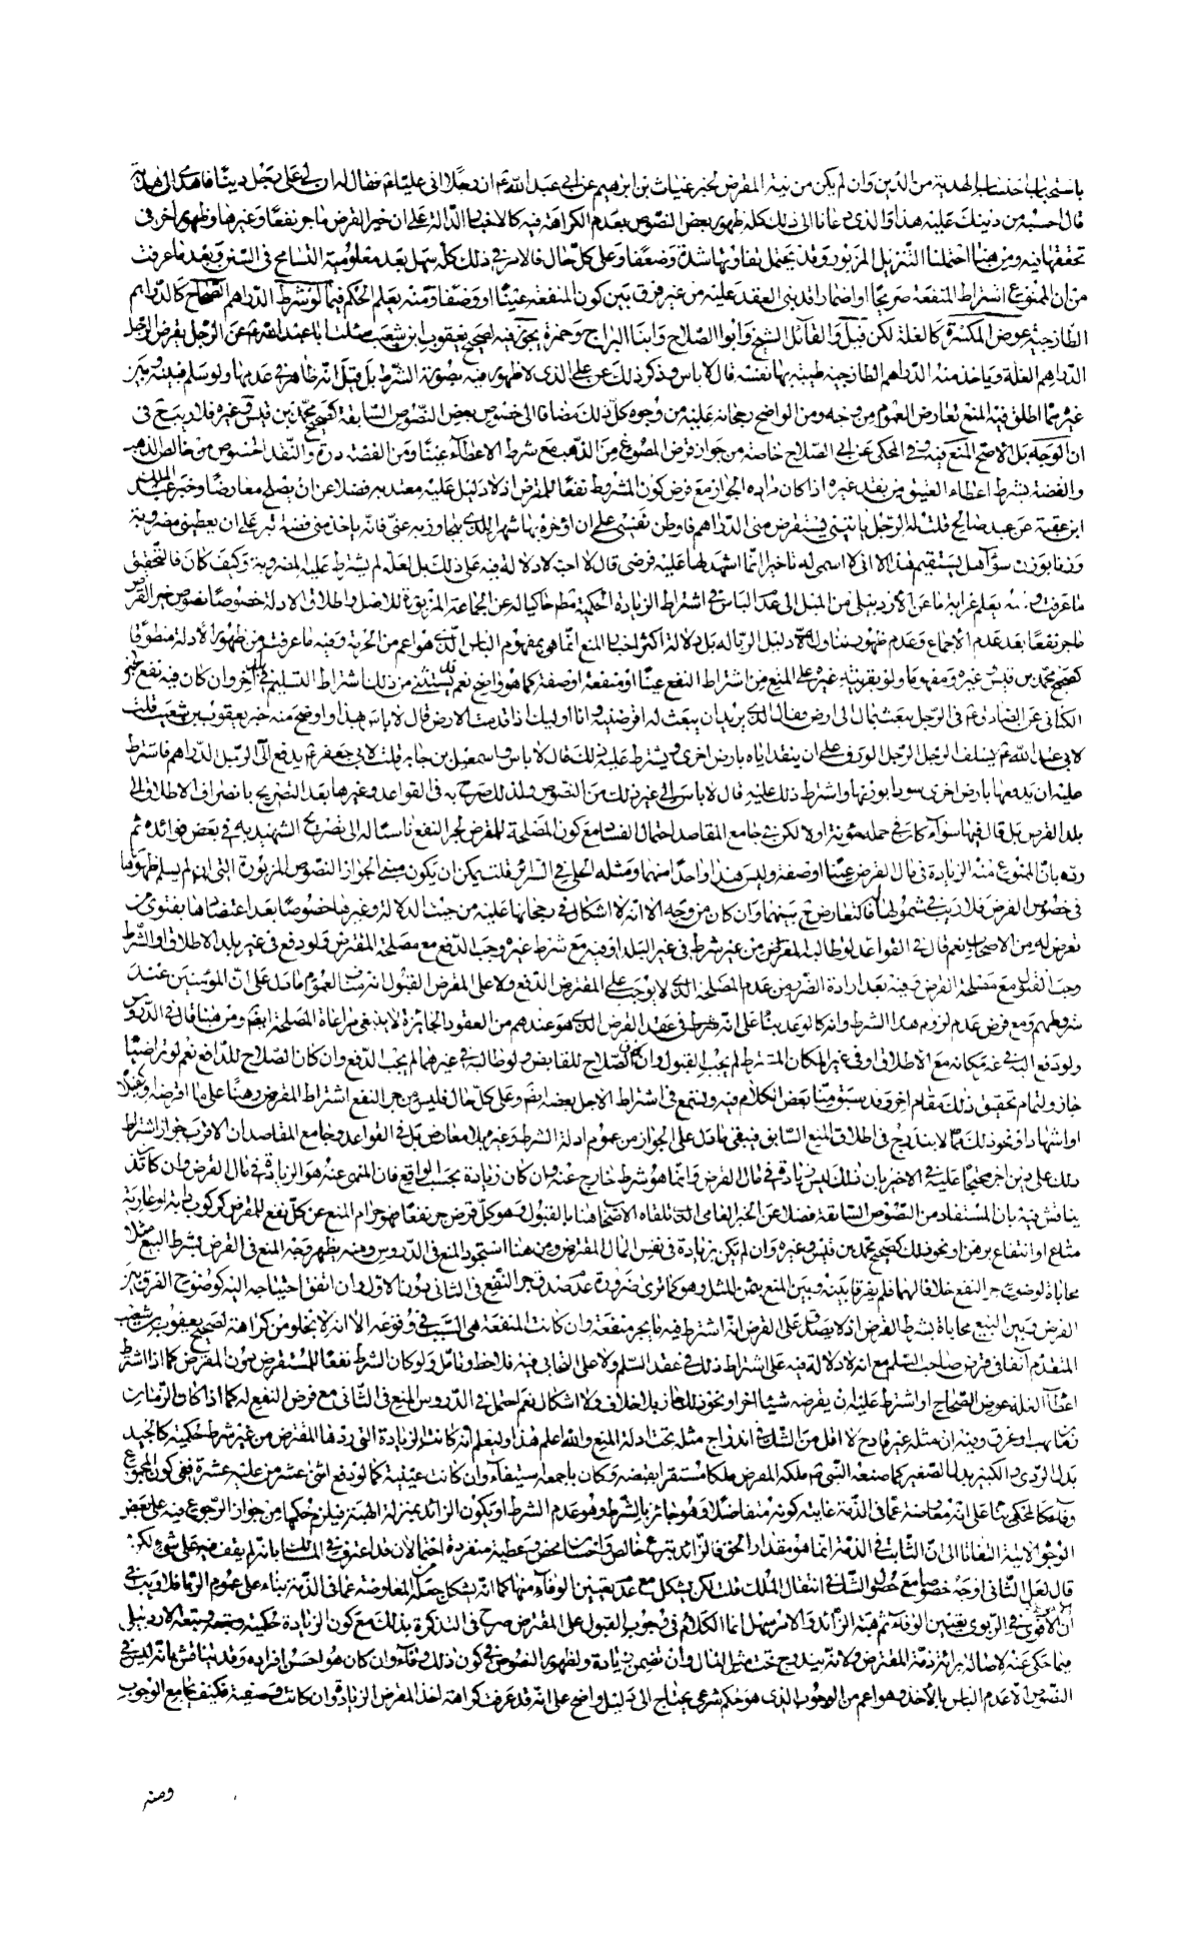 باستحباب احتساب الهدية من الدين وان لم يكن من نية المقرض لخبر غياث بن ابراهيم عن ابى عبد الله ع ان رجلا اتى عليا ع فقال له ان لى على رجل دينا فاهدى الى هدية
قال احسبه من دينك عليه هذا والذى دعانا الى ذلك كله ظهور بعض النصوص بعدم الكراهة فيه كالاخبار الدالة على ان خير القرض ما جر نفعا وغيرها وظهور اخر فى
تحققها فيه ومن هنا احتملنا التنزيل المزبور وقد يحتمل تفاوتها شدة وضعفا وعلى كل حال فالامر فى ذلك كله سهل بعد معلومية التسامح فى السنن وبعد ما عرفت
من ان الممنوع اشتراط المنفعة صريحا او اضمارا قد بنى العقد عليه من غير فرق بين كون المنفعة عينا او وصفا ومنه يعلم الحكم فيما لو شرط الدراهم الصحاح كالدراهم
الطازجية عوض المكسرة كالغلة لكن قيل والقائل الشيخ وابوا الصلاح وابنا البراج وحمزة يجوز فيه لصحيح يعقوب ابن شعيب سئلت ابا عبد الله ع عن الرجل يقرض الرجل
الدراهم الغلة فياخذ منه الدراهم الطازجية طيبة بها نفسه قال لا باس وذكر ذلك عن على الذى لا ظهور فيه بصورة الشرط بل قيل انه ظاهر فى عدمها ولو سلم فبينه وبين
غيره مما اطلق فيه المنع تعارض العموم من وجه ومن الواضح رجحانه عليه من وجوه كل ذلك مضافا الى خصوص بعض النصوص السابقة كصحيح محمد بن قيس وغيره فلا ريب فى
ان الوجه بل الاصح المنع فيه وفى المحكى عن ابى الصلاح خاصة من جواز قرض المصوغ من الذهب مع شرط الاعطاء عينا ومن الفضة درة والنقد المخصوص من خالص الذهب
والفضة بشرط اعطاء العتيق من نقد غيره اذا كان مراده الجواز مع فرض كون المشروط نفعا للمقرض اذ لا دليل عليه معتد به فضلا عن ان يصلح معارضا وخبر عبد الملك
ابن عقبة عن عبد صالح قلت له الرجل ياتينى فيستقرض منى الدراهم فاوطن نفسى على ان اؤخره بها شهرا للذى يتجاوز به عنى فانه ياخذ منى فضة تبر على ان يعطينى مضروبة
وزنا بوزن سواء هل يستقيم هذا الا انى لا اسمى له تاخيرا انما اشهد لها عليه فرضى قال لا احبه لا دلالة فيه على ذلك بل لعله لم يشترط عليه المضروبة وكيف كان فالتحقيق
ما عرفت ومنه يعلم غرابة ما عن الاردبيلى من الميل الى عدم الباس فى اشتراط الزيادة الحكمية مطم حاكيا له عن الجماعة المزبورة للاصل واطلاق الادلة خصوصا نصوص خير القرض
ما جر نفعا بعد عدم الاجماع وعدم ظهور متناول دليل الربا له بل دلالة اكثر اخبار المنع انما هو بمفهوم الباس الذى هو اعم من الحرمة وفيه ما عرفت من ظهور الادلة منطوقا
كصحيح محمد بن قيس وغيره ومفهوما ولو بقرينة غيره على المنع من اشتراط النفع عينا او منفعة او صفة كما هو واضح نعم قد يستثنى من ذلك اشتراط التسليم فى بلد اخر وان كان فيه نفع لخبر
الكنانى عن الصادق ع فى الرجل يبعث بمال الى ارض فقال الذى يريد ان يبعث له اقرضنيه وانا اوفيك اذا قدمت الارض قال لا باس بهذا واوضح منه خبر يعقوب بن شعيب قلت
لابى عبد الله ع يسلف الرجل الرجل الورق على ان ينقد اياه بارض اخرى ويشترط عليه ذلك قال لا باس واسمعيل بن جابر قلت لابى جعفر ع يدفع الى الرجل الدراهم فاشترط
عليه ان يدفعها بارض اخرى سودا بوزنها واشترط ذلك عليه قال لا باس الى غير ذلك من النصوص ولذلك صرح به فى القواعد وغيرها بعد التصريح بانصراف الاطلاق الى
بلد القرض بل قال فيها سواء كان فى حمله مؤنة او لا لكن فى جامع المقاصد احتمال الفساد مع كون المصلحة للمقرض لجر النفع ناسبا له الى تصريح الشهيد به فى بعض فوائده ثم
رده بان الممنوع منه الزيادة فى مال القرض عينا او صفة وليس هذا واحدا منهما ومثله الحلى فى السرائر قلت يمكن ان يكون مبنى الجواز النصوص المزبورة التى ان لم يسلم ظهورها
فى خصوص القرض فلا ريب فى شمولها فالتعارض بينهما وان كان من وجه الا انه لا اشكال فى رجحانها عليه من حيث الدلالة وغيرها خصوصا بعد اعتضادها بفتوى من
تعرض له من الاصحاب نعم قال فى القواعد لو طالب المقرض من غير شرط فى غير البلد او فيه مع شرط غيره وجب الدفع مع مصلحة المقترض ولو دفع فى غير بلد الاطلاق او الشرط
وجب القبول مع مصلحة المقرض وفيه بعد ارادة الضرر من عدم المصلحة الذى لا يوجب على المقترض الدفع ولا على المقرض القبول العموم ما دل على ان المؤمنين عند
شروطهم ومع فرض عدم لزوم هذا الشرط وانه كالوعد بناء على انه شرط فى عقد القرض الذى هو عندهم من العقود الجائزة لا بد فى مراعاة المصلحة ايضم ومن هنا قال فى الدروس
ولو دفع اليه فى غير مكانه مع الاطلاق او فى غير المكان المشترط لم يجب القبول وان كان الصلاح للقابض ولو طالبه فى غيرهما لم يجب الدفع وان كان الصلاح للدافع نعم لو تراضيا
جاز ولتمام تحقيق ذلك مقام اخر وقد سبق منا بعض الكلام فيه وينتمع فى اشتراط الاجل بعضه ايضم وعلى كل حال فليس من جر النفع اشتراط المقرض رهنا على ما اقرضه وكفيلا
او اشهادا ونحو ذلك مما لا يندرج فى اطلاق المنع السابق فيبقى ما دل على الجواز من عموم ادلة الشرط وغيره بلا معارض بل فى القواعد وجامع المقاصد ان الاقرب جواز اشتراط
ذلك على دين اخر محتجا عليه فى الاخير بان ذلك ليس زيادة فى مال القرض وانما هو شرط خارج عنه وان كان زيادة بحسب الواقع فان المنهى عنه هو الزيادة فى مال القرض وان كان قد
يناقش فيه بان المستفاد من النصوص السابقة فضلا عن الخبر العامى الذى تلقاه الاصحاب هنا بالقبول وهو كل قرض جر نفعا فهو حرام المنع عن كل نفع للمقرض كركوب دابة او عارية
متاع او انتفاع برهن او نحو ذلك كصحيح محمد بن قيس وغيره وان لم يكن زيادة فى نفس المال المقترض ومن هنا استجود المنع فى الدروس ومنه يظهر وجه المنع فى القرض بشرط البيع مثلا
محاباة لوضوح جر النفع خلافا لهما فلم يفرقا بينه وبين البيع بثمن المثل وهو كما ترى ضرورة عدم صدق جر النفع فى الثانى دون الاول وان اتفق احتياجه اليه كوضوح الفرق بين
القرض وبين البيع محاباة بشرط القرض اذ لا يصدق على القرض انه اشترط فيه ما يجر منفعة وان كانت المنفعة هى السبب فى وقوعه الا انه لا يخلو من كراهة لصحيح يعقوب بن شعيب
المتقدم انفا فى قرض صاحب السلم مع انه لا دلالة فيه على اشتراط ذلك فى عقد السلم ولا على المحاباة فيه فلاحظ وتامل ولو كان الشرط نفعا للمستقرض دون المقرض كما اذا اشترط
اعطاء الغلة عوض الصحاح او اشترط عليه ان يقرضه شيئا اخر او نحو ذلك جاز بلا خلاف ولا اشكال نعم احتمل فى الدروس المنع فى الثانى مع فرض النفع له كما اذا كان الزمان
زمان نهب او غرق وفيه ان مثله غير قادح لا اقل من الشك فى اندراج مثله تحت ادلة المنع والله اعلم هذا وليعلم انه كانت الزيادة التى ردها المقترض من غير شرط حكمية كالجيد
بدل الردى والكبير بدل الصغير كما صنعه النبى ص ملكه المقرض ملكا مستقرا بقبضه وكان باجمعه استيفاء وان كانت عينية كما لو دفع اثنى عشر من عليه عشرة ففى كون المجموع
وفاء كالحكمى بناء على انه معاوضة عما فى الذمة غايته كونه متفاضلا وهو جائز بالشرط وهو عدم الشرط او يكون الزائد بمنزلة الهبة فيلزم حكمها من جواز الرجوع فيه على بعض
الوجوه الاتية التفاتا الى ان الثابت فى الذمة انما هو مقدار الحق فالزائد تبرع خالص واحسان محض وعطية منفردة احتمالان قد اعترف فى المسالك بانه لم يقف فيه على شىء لكن
قال لعل الثانى اوجه خصوصا مع حصول الشك فى انتقال الملك قلت لكن يشكل مع عدم تعيين الوفاء منها كما انه يشكل جعله من المعاوضة عما فى الذمة بناء على عموم الربا فلا ريب فى
ان الاقوى فى الربوى تعيين الوفاء ثم هبة الزائد والامر سهل انما الكلام فى وجوب القبول على المقرض صرح فى التذكرة بذلك مع كون الزيادة حكمية وتبعه الاردبيلى
فيما حكى عنه لاصالة برائة ذمة المقترض ولانه يندرج تحت مثل المال وان تضمن زيادة ولظهور النصوص فى كون ذلك وفاء وان كان هو احسن افراده وقد يناقش بانه ليس فى
النصوص الا عدم الباس بالاخذ وهو اعم من الوجوب الذى هو حكم شرعى يحتاج الى دليل واضح على انه قد عرفت كراهة اخذ المقرض الزيادة وان كانت وصفية فكيف يجامع الوجوب
ومنه